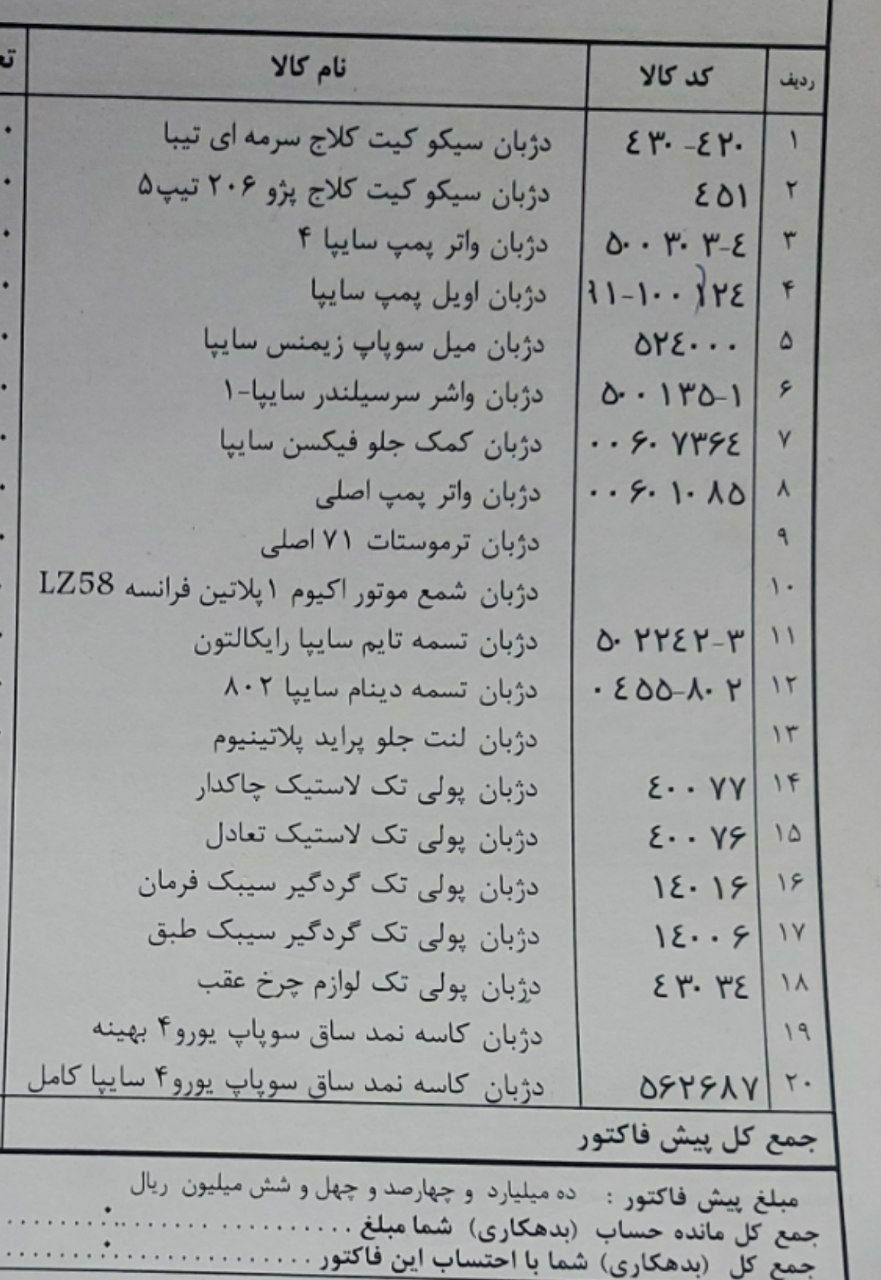 ردیف کد کالا نام کالا
۱ ٤٣٠-٤٢٠ دژبان سیکو کیت کلاج سرمه ای تیبا
۲ ٤٥١ دژبان سیکو کیت کلاج پژو ۲۰۶ تیپ۵
۳ ۵۰۰۳۰۳-٤ دژبان واتر پمپ سایپا ۴
۴ دژبان اویل پمپ سایپا
۵ ۵۲٤۰۰۰ دژبان میل سوپاپ زیمنس سایپا
۶ ۵۰۰۱۳۵-۱ دژبان واشر سرسیلندر سایپا-۱
۷ ۰۰۶۰۷۳۶٤ دژبان کمک جلو فیکسن سایپا
۸ ۰۰۶۰۱۰۸۵ دژبان واتر پمپ اصلی
۹ دژبان ترموستات ۷۱ اصلی
۱۰ دژبان شمع موتور اکیوم ۱پلاتین فرانسه LZ58
۱۱ ۵۰۲۲٤۲-۳ دژبان تسمه تایم سایپا رایکالتون
۱۲ ۰٤۵۵-۸۰۲ دژبان تسمه دینام سایپا ۸۰۲
۱۳ دژبان لنت جلو پراید پلاتینیوم
۱۴ ٤۰۰۷۷ دژبان پولی تک لاستیک چاکدار
۱۵ ٤۰۰۷۶ دژبان پولی تک لاستیک تعادل
۱۶ ۱٤۰۱۶ دژبان پولی تک گردگیر سیبک فرمان
۱۷ ۱٤۰۰۶ دژبان پولی تک گردگیر سیبک طبق
۱۸ ٤۳۰۳٤ دژبان پولی تک لوازم چرخ عقب
۱۹ دژبان کاسه نمد ساق سوپاپ یورو۴ بهینه
۲۰ ۵۶۲۶۸۷ دژبان کاسه نمد ساق سوپاپ یورو۴ سایپا کامل
جمع کل پیش فاکتور
مبلغ پیش فاکتور : ده میلیارد و چهارصد و چهل و شش میلیون ریال
جمع کل مانده حساب (بدهکاری) شما مبلغ
جمع کل (بدهکاری) شما با احتساب این فاکتور